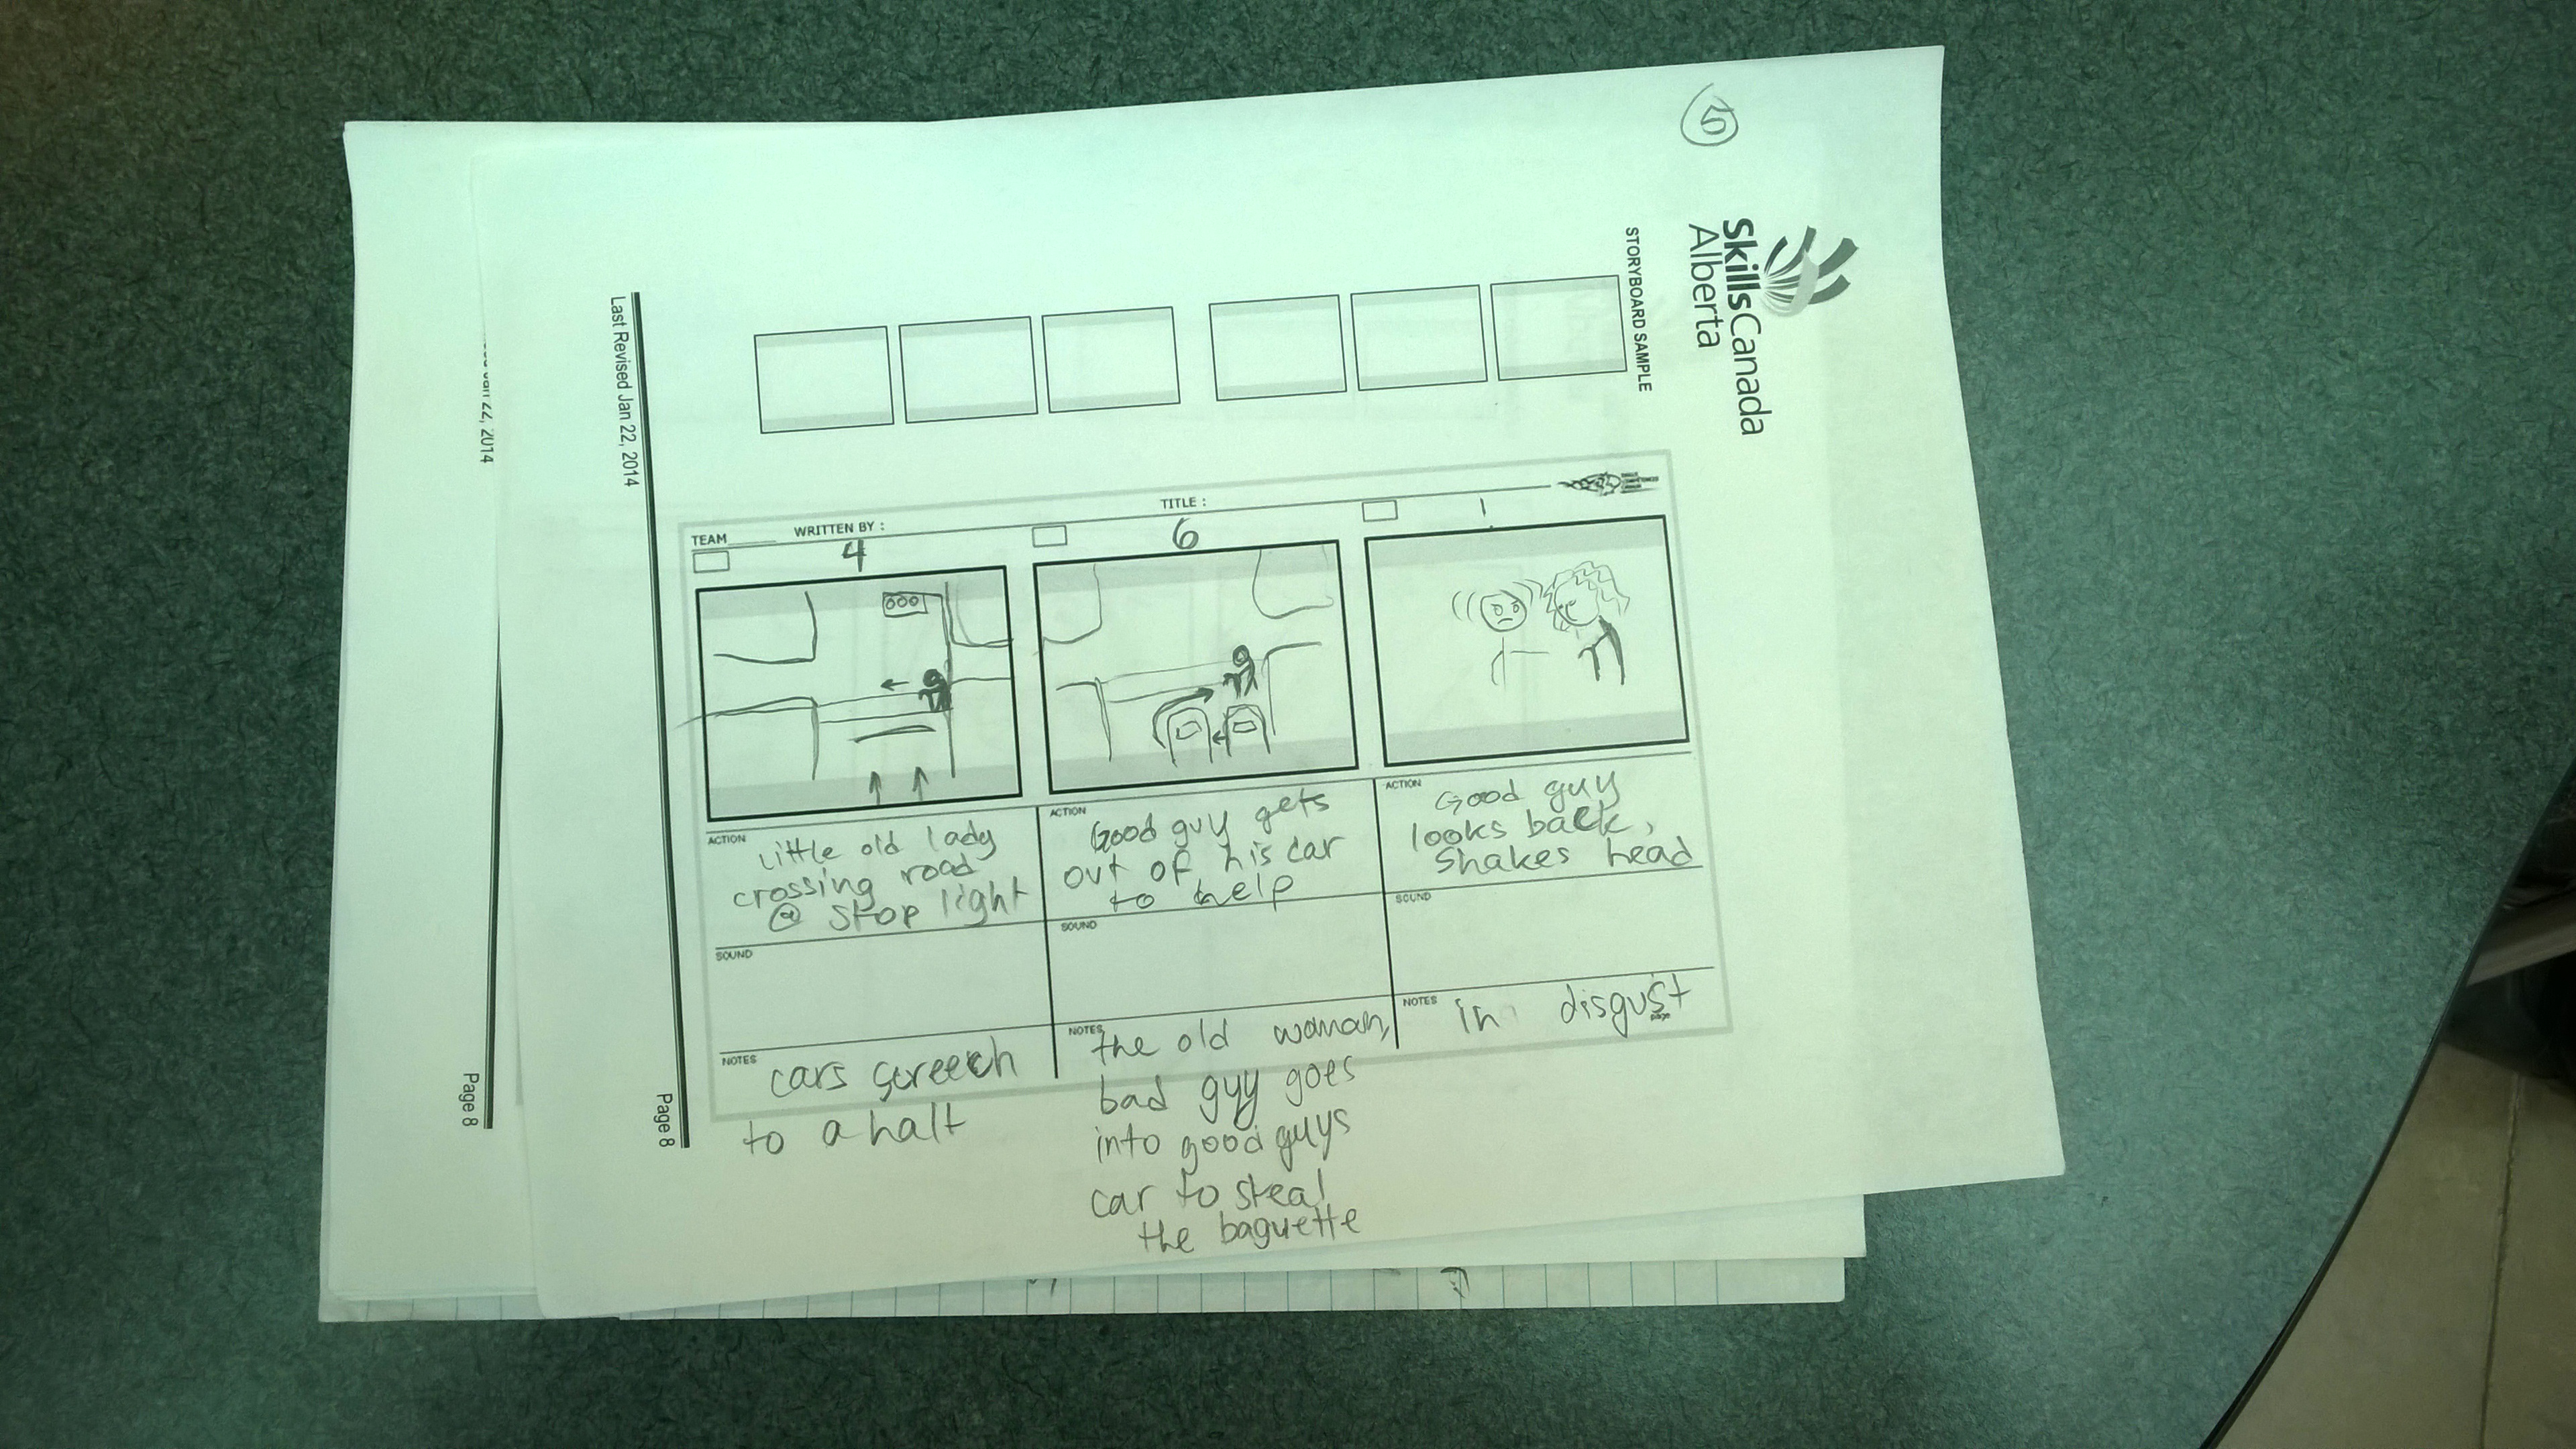 5
SkillsCanada
Alberta
STORYBOARD SAMPLE
TEAM
WRITTEN BY :
TITLE :
4
6
1
ACTION
Little old lady
crossing road
@ stop light
SOUND
NOTES
cars screech
to a halt
ACTION
Good guy gets
out of his car
to help
SOUND
NOTES
the old woman,
bad guy goes
into good guys
car to steal
the baguette
ACTION
Good guy
looks back,
shakes head
SOUND
NOTES
in disgust
Last Revised Jan 22, 2014
Page 8
Jan 22, 2014
Page 8